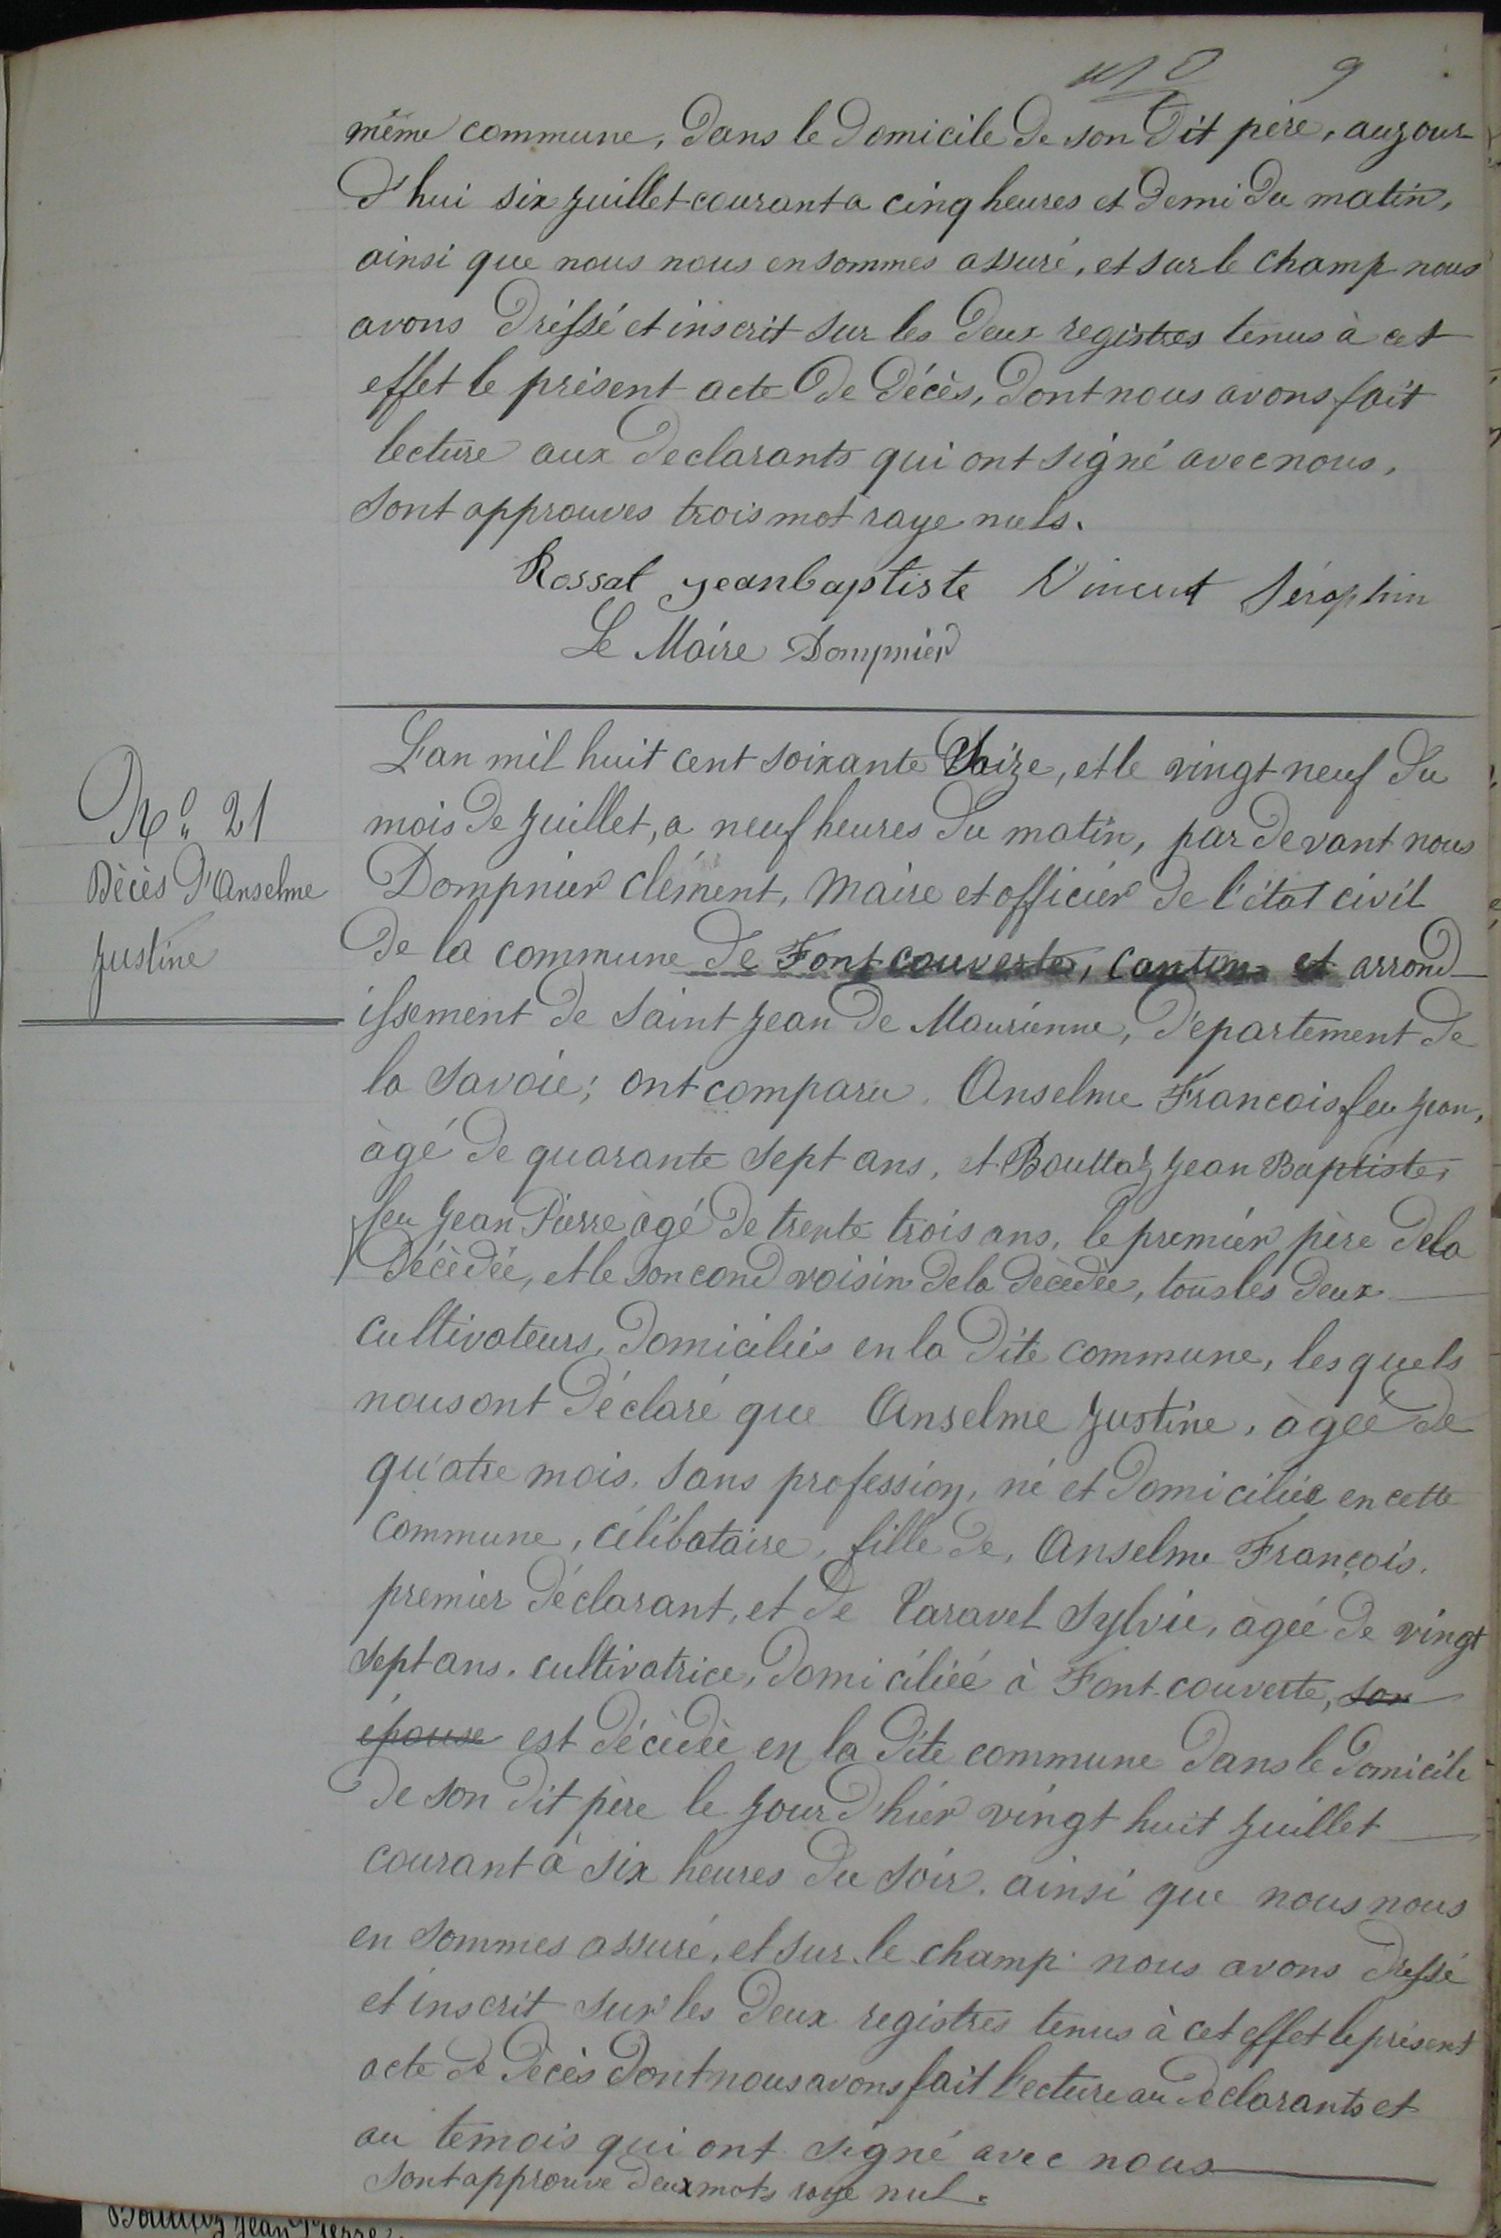 9
même commune, dans le domicile de son dit père, aujour
d'hui six juillet courant a cinq heures et demi du matin,
ainsi que nous nous en sommes assuré, et sur le champ nous
avons dréssé et inscrit sur les deux registres tenus à cet
effet le présent acte de décès, dont nous avons fait
lecture aux declarants qui ont signé avec nous,
sont approuves trois mot raye nuls.
Rossat jean baptiste Vincent Séraphin
Le Maire Dompnier
N° 21
Décès d'Anselme
Justine
L'an mil huit cent soixante seize, et le vingt neuf du
mois de juillet, a neuf heures du matin, par devant nous
Dompnier clément, Maire et officier de l'état civil
de la commune de Fontcouverte, canton et arrond
issement de Saint Jean de Maurienne, département de
la Savoie; ont comparu Anselme Francois feu jean,
àgé de quarante sept ans, et Bouttaz jean Baptiste,
feu Jean Pierre àgé de trente trois ans, le premier père de la
décèdée, et le soncond voisin de la décèdée, tous les deux
cultivateurs, domiciliés en la dite commune, les quels
nous ont déclaré que Anselme Justine, àgée de
quatre mois, sans profession, né et domiciliée en cette
commune, célibataire, fille de, Anselme François,
premier déclarant, et de Taravel Sylvie, àgée de vingt
sept ans, cultivatrice, domiciliéé à Font-couverte, son
épouse est décèdèe en la dite commune dans le domicile
de son dit père le jour d'hier vingt huit juillet
courant à six heures du soir. ainsi que nous nous
en sommes assuré, et sur le champ nous avons dressé
et inscrit sur les deux registres tenus à cet effet le présent
acte de décès dont nous avons fait lecture au declarants et
au temois qui ont signé avec nous
sont approuve deux mots raye nul.
Jean Pierre